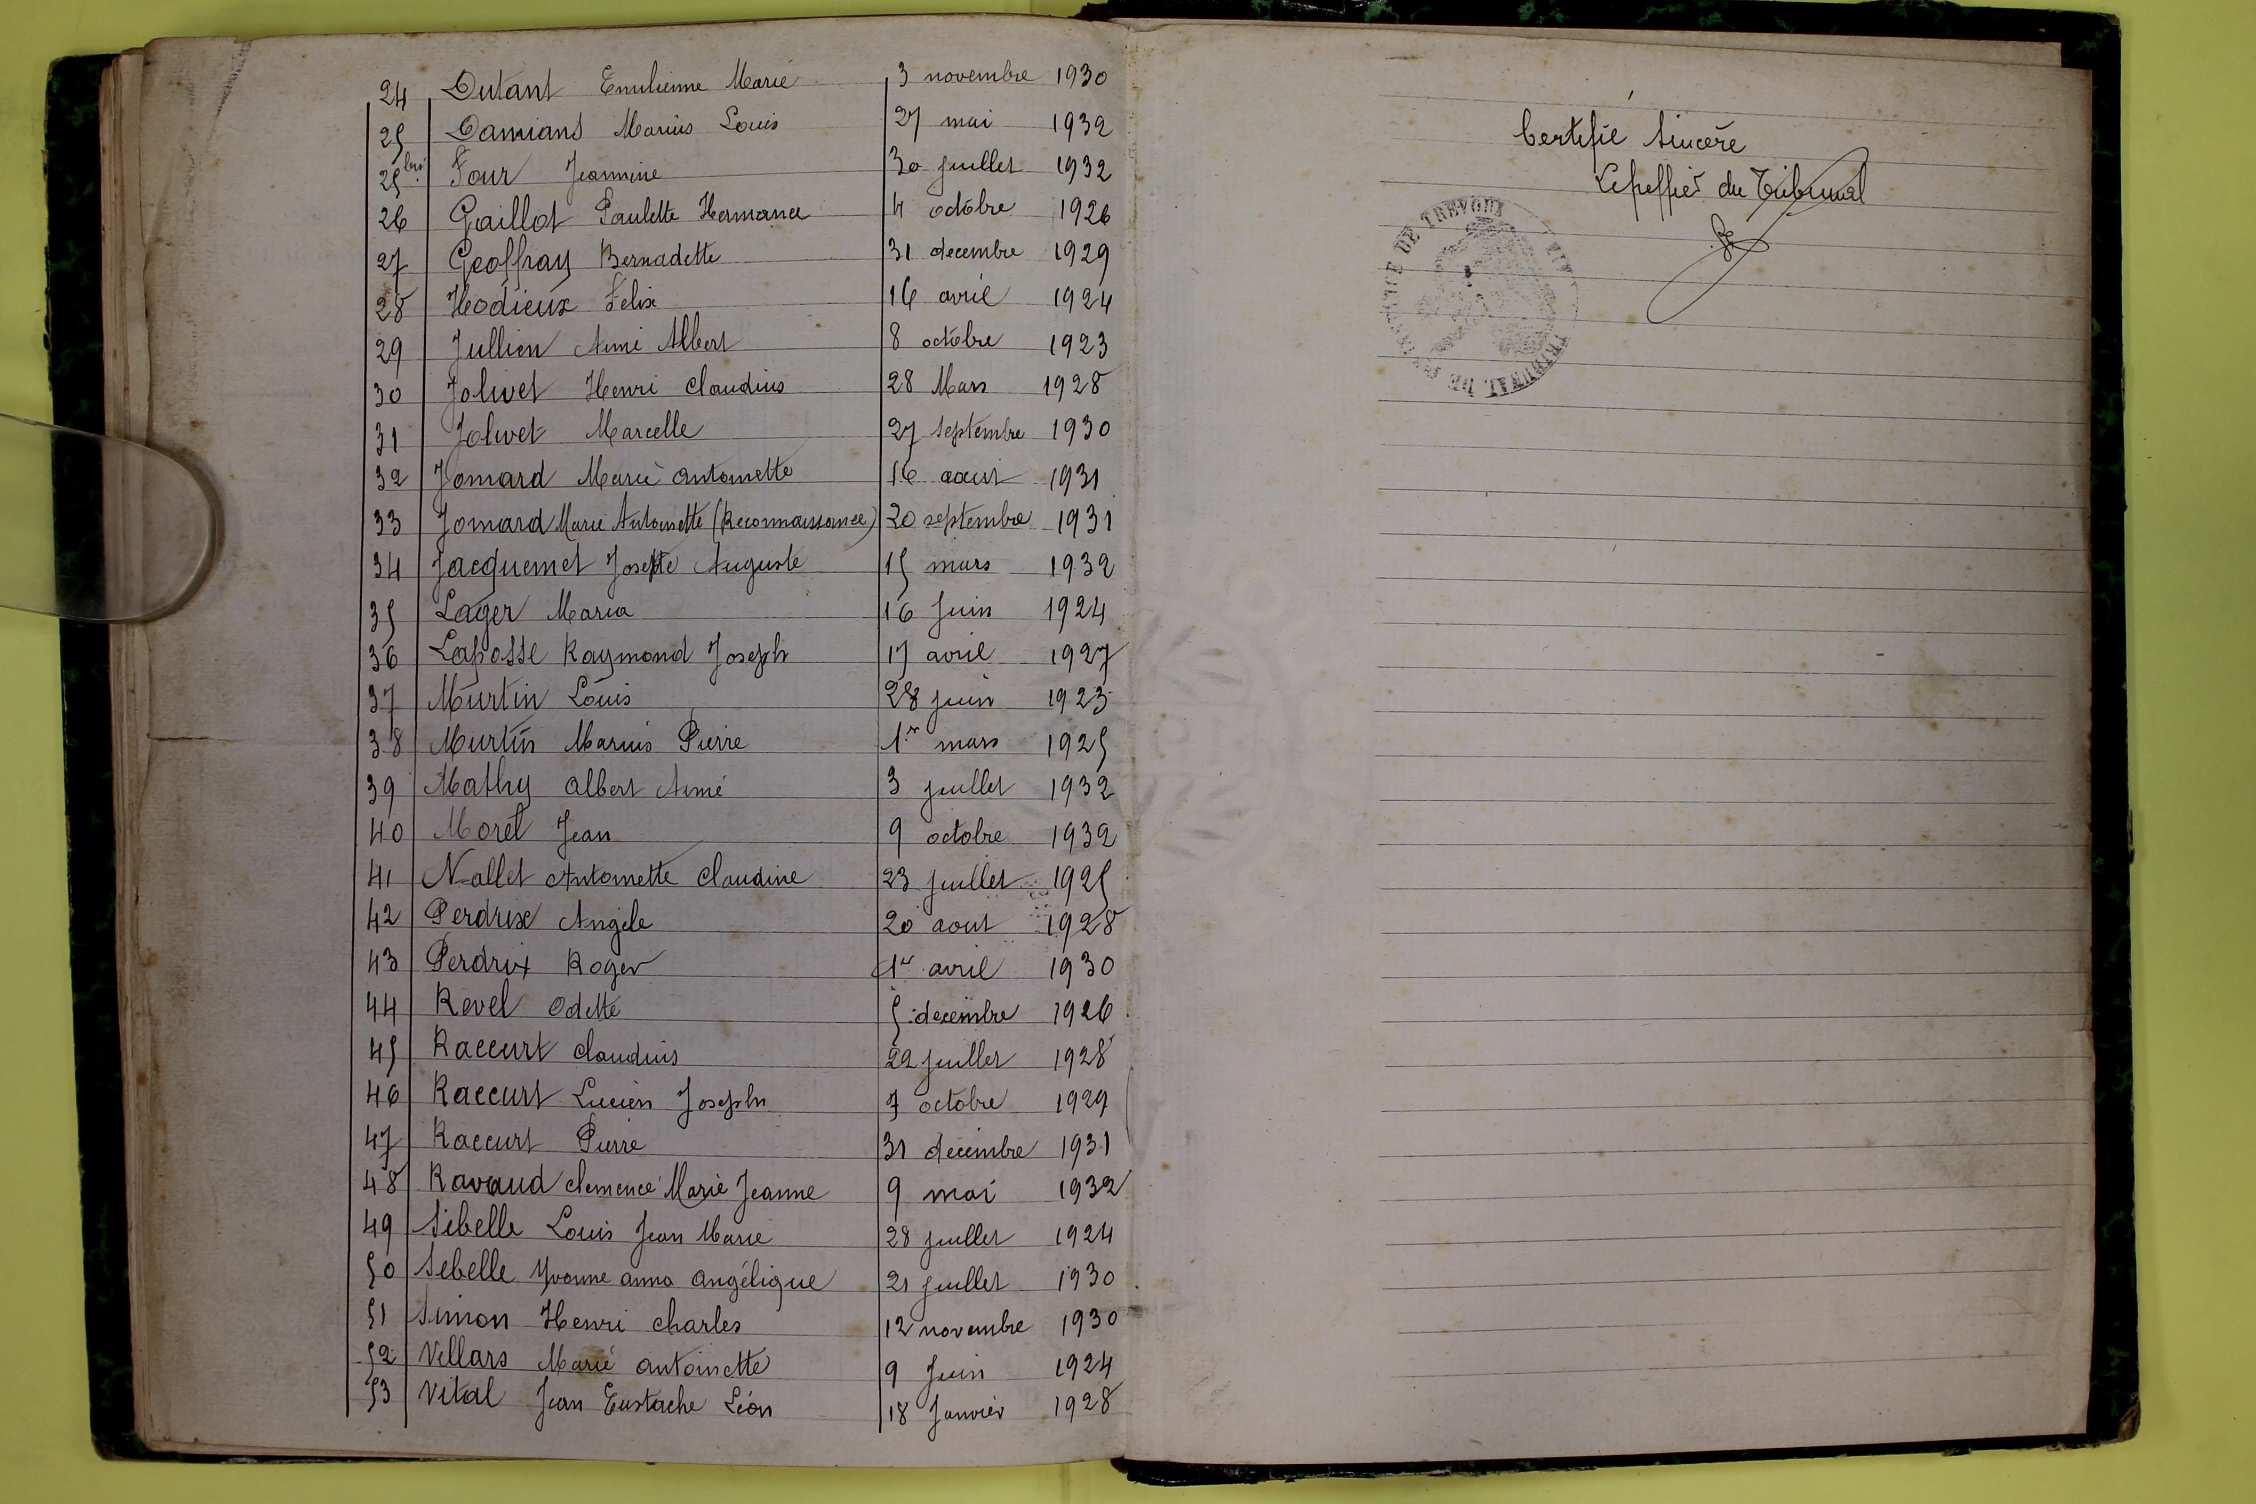 24 Dutant Emilienne Marie 3 novembre 1930
25 Damians Marius Louis 27 mai 1932
25 bis Four Jeannine 30 juillet 1932
26 Gaillot Paulette Hermance 4 octobre 1926
27 Geoffray Bernadette 31 decembre 1929
28 Hodieux Felix 16 avril 1924
29 Jullien Aimé Albert 8 octobre 1923
30 Jolivet Henri Claudius 28 Mars 1928
31 Jolivet Marcelle 27 septembre 1930
32 Jomard Marie Antoinette 16 aout 1931
33 Jomard Marie Antoinette (Reconnaissance) 20 septembre 1931
34 Jacquemet Auguste 15 mars 1932
35 Lager Maria 16 Juin 1924
36 Raymond Joseph 17 avril 1927
37 Murtin Louis 28 juin 1923
38 Murtin Marius Pierre 1er mars 1925
39 Mathy Albert Aimé 3 juillet 1932
40 Morel Jean 9 octobre 1932
41 Nallet Antoinette Claudine 23 juillet 1925
42 Perdrix Angele 20 aout 1928
43 Perdrix Roger 1er avril 1930
44 Revel Odette 5 decembre 1926
45 Raccurt Claudius 22 juillet 1928
46 Raccurt Lucien Joseph 7 octobre 1929
47 Raccurt Pierre 31 decembre 1931
48 Ravaud Clemence Marie Jeanne 9 mai 1932
49 Sibelle Louis Jean Marie 28 juillet 1924
50 Sibelle Yvonne Anna Angélique 21 juillet 1930
51 Simon Henri Charles 12 novembre 1930
52 Villars Marie Antoinette 9 Juin 1924
53 Vital Jean Eustache Léon 18 Janvier 1928
Certifié Sincère
Le Greffier du Tribunal
TRIBUNAL DE INSTANCE DE TREVOUX